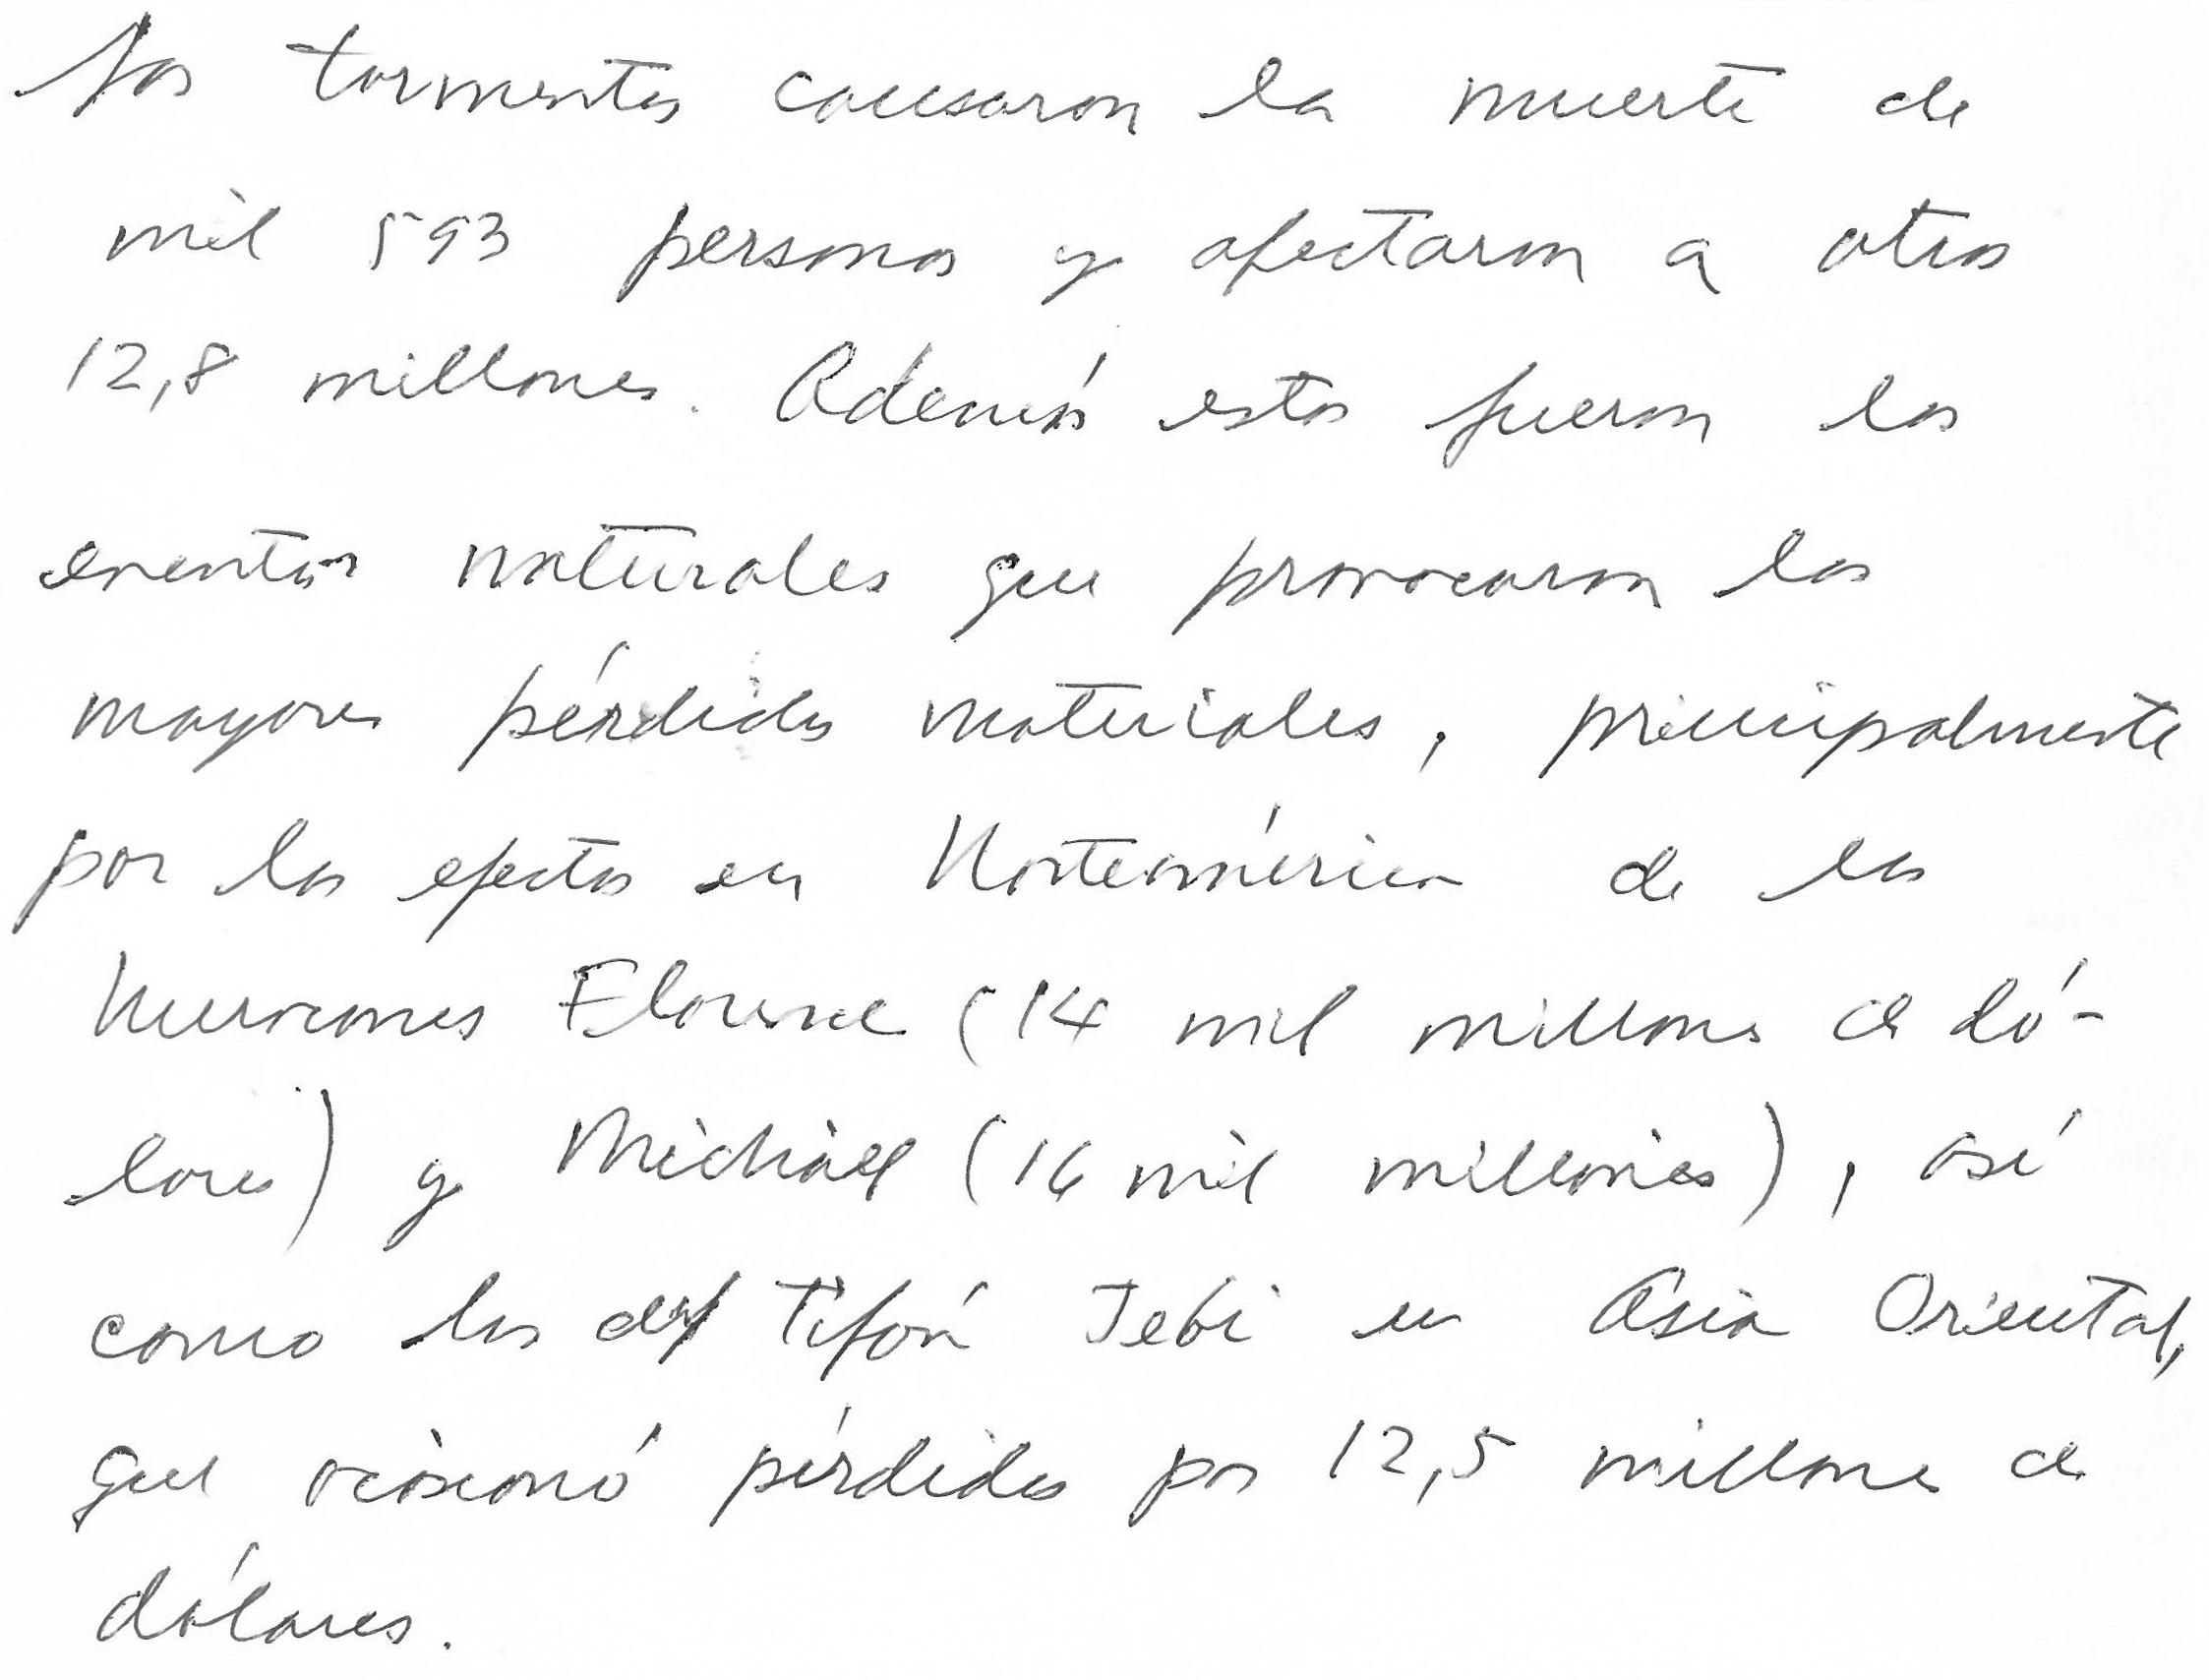 Las tormentas causaron la muerte de
mil 593 personas y afectaron a otras
12,8 millones. Además estos fueron los
eventos naturales que provocaron las
mayores pérdidas materiales, principalmente
por los efectos en Norteamérica de los
huracanes Florence (14 mil millones de dó-
lares) y Michael (16 mil millones), así
como los del Tifón Jebi en Asia Oriental,
que ocasionó pérdidas por 12,5 millones de
dólares.